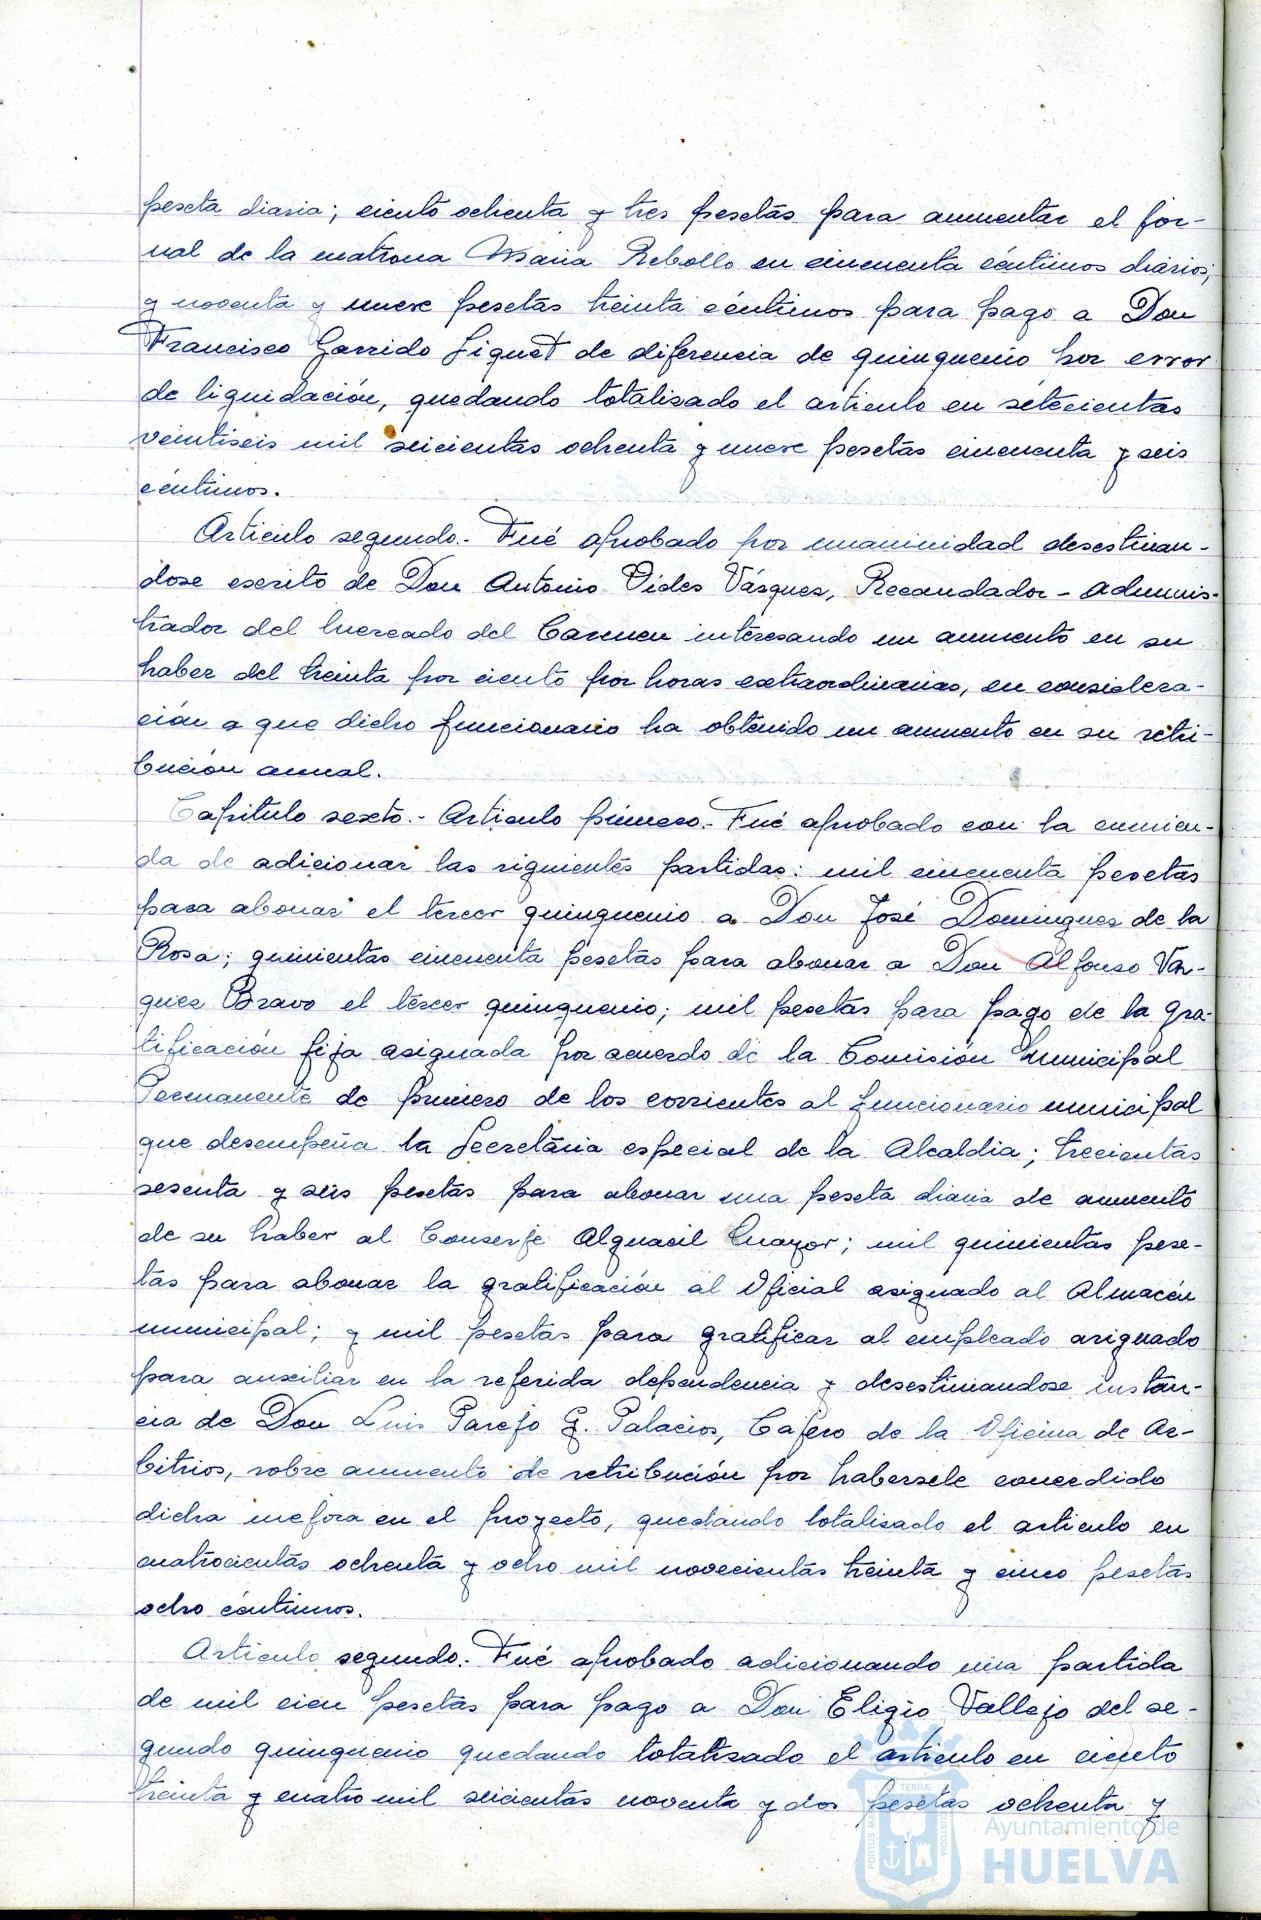 peseta diaria; ciento ochenta y tres pesetas para aumentar el jor-
nal de la matrona Maria Rebollo en cincuenta céntimos diarios;
y noventa y nueve pesetas treinta céntimos para pago a Don
Francisco Garrido Liguet de diferencia de quinquenio por error
de liquidación, quedando totalizado el artículo en setecientas
veintiseis mil seicientas ochenta y nueve pesetas cincuenta y seis
céntimos.
Artículo segundo.- Fué aprobado por unanimidad desestiman-
dose escrito de Don Antonio Vides Vásques, Recaudador-adminis-
trador del Mercado del Carmen interesando un aumento en su
haber del treinta por ciento por horas extraordinarias, en considera-
ción a que dicho funcionario ha obtenido un aumento en su retri-
bución anual.
Capítulo sexto.- Artículo primero.- Fué aprobado con la enmien-
da de adicionar las siguientes partidas: mil cincuenta pesetas
para abonar el tercer quinquenio a Don José Domingues de la
Rosa; quinientas cincuenta pesetas para abonar a Don Alfonso Vas-
ques Bravo el tercer quinquenio; mil pesetas para pago de la gra-
tificación fija asignada por acuerdo de la Comisión Municipal
Permanente de primero de los corrientes al funcionario municipal
que desempeña la Secretaria especial de la Alcaldia; trecientas
sesenta y seis pesetas para abonar una peseta diaria de aumento
de su haber al Conserje Alguacil Mayor; mil quinientas pese-
tas para abonar la gratificación al Oficial asignado al Almacén
municipal; y mil pesetas para gratificar al empleado asignado
para auxiliar en la referida dependencia y desestimandose instan-
cia de Don Luis Parejo G. Palacios, Cajero de la Oficina de Ar-
bitrios, sobre aumento de retribución por habersele concedido
dicha mejora en el proyecto, quedando totalisado el artículo en
cuatrocientas ochenta y ocho mil novecientas treinta y cinco pesetas
ocho céntimos.
Artículo segundo.- Fué aprobado adicionando una partida
de mil cien pesetas para pago a Don Eligio Vallejo del se-
gundo quinquenio quedando totalizado el artículo en ciento
treinta y cuatro mil seicientas noventa y dos pesetas ochenta y
Ayuntamiento de
HUELVA